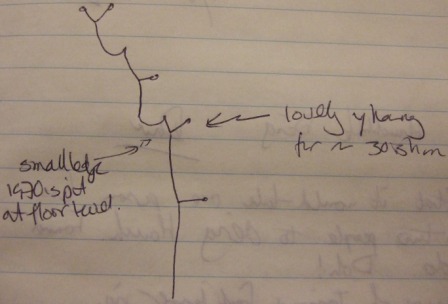 lovely y hang
for ~ 30ish m
small ledge
1970s spit
at floor level.